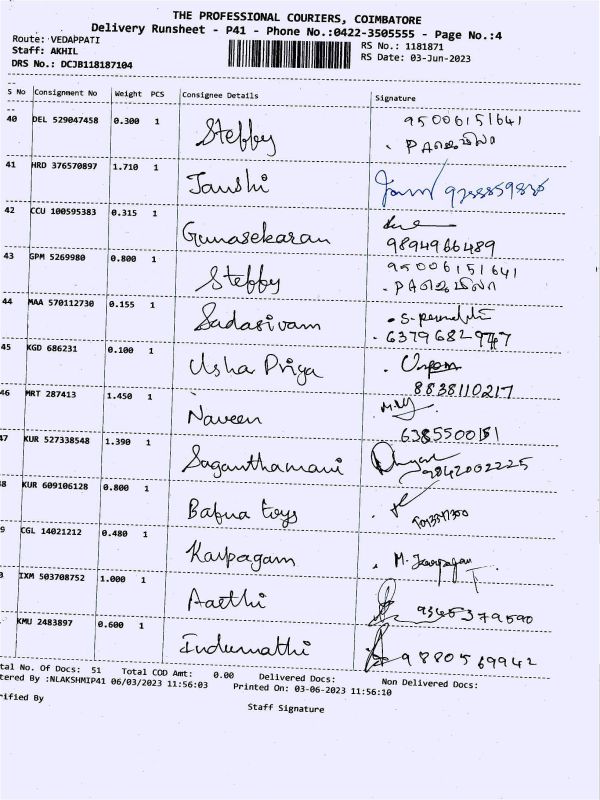 THE PROFESSIONAL COURIERS, COIMBATORE
Delivery Runsheet - P41 - Phone No.:0422-3505555 - Page No.:4
Route: VEDAPPATI
RS No.: 1181871
Staff: AKHIL
RS Date: 03-Jun-2023
DRS No.: DCJB118187104
S No Consignment No Weight PCS Consignee Details Signature
40 DEL 529047458 0.300 1 Steffy 95006151641
41 HRD 376570897 1.710 1 Janshi
42 CCU 100595383 0.315 1 Gunasekaran 9894966489
43 GPM 5269980 0.800 1 Steffy 95006151641
44 MAA 570112730 0.155 1 Sadasivam
45 KGD 686231 0.100 1 Usha Priya 8838110217
46 MRT 287413 1.450 1 Naveen
47 KUR 527338548 1.390 1 Saganthamani 9842002225
8 KUR 609106128 0.800 1 Bafna toys
9 CGL 14021212 0.480 1 Karpagam M.
IXM 503708752 1.000 1 Aarthi 9365379590
KMU 2483897 0.600 1 Indumathi 9880569942
tal No. Of Docs: 51 Total COD Amt: 0.00 Delivered Docs: Non Delivered Docs:
tered By :NLAKSHMIP41 06/03/2023 11:56:03 Printed On: 03-06-2023 11:56:10
rified By Staff Signature